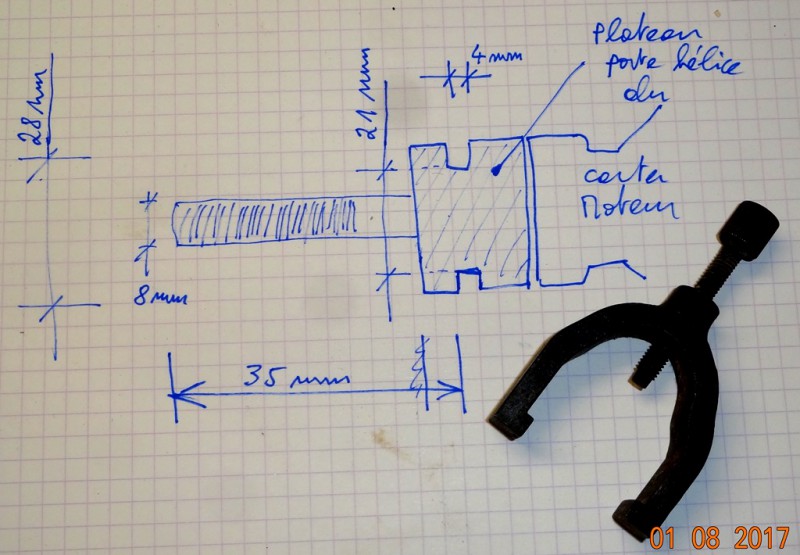 Plateau
porte hélice
du
carter
Moteur
4 mm
21 mm
28 mm
8 mm
35 mm
01 08 2017